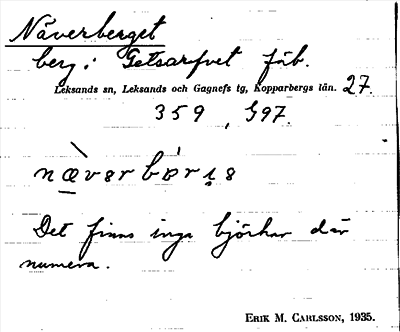 Näverberget
berg: Getsarfvet fäb.
Leksands sn, Leksands och Gagnefs tg, Kopparbergs län. 27.
359, 597.
Det finns inga björkar där
numera.
ERIK M. CARLSSON, 1935.